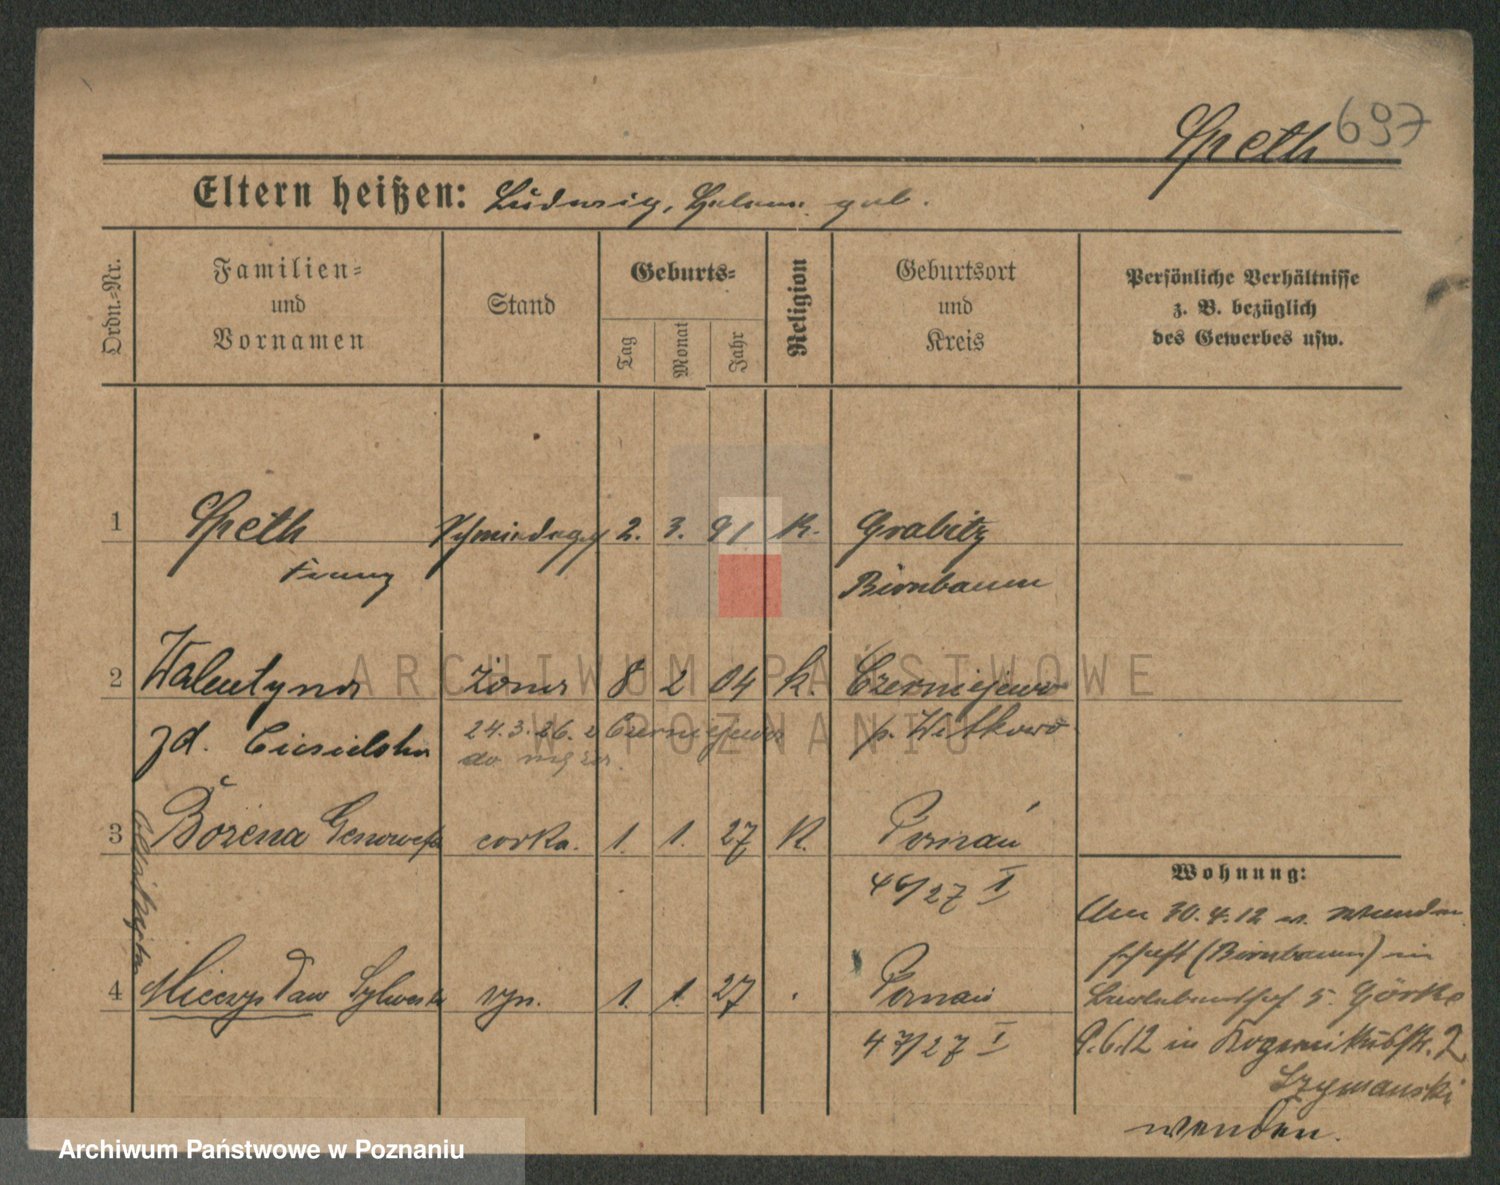 Speth 697
Eltern heißen: Ludwig, geb.
Ordn.-Nr.
Familien-
und
Vornamen
Stand
Geburts-
Tag
Monat
Jahr
Religion
Geburtsort
und
Kreis
Persönliche Verhältnisse
z. B. bezüglich
des Gewerbes usw.
1 Speth Schmiedeges 2. 3. 91 K. Grabitz
Franz Birnbaum
2 Walentyna żona 8 2 04 k. Czerniejewo
zd. Ciesielska 24.3.26. z Czerniejewa p. Witkowo
do męża.
3 Bożena Genowefa corka. 1. 1. 27 K. Poznań
46/27 I
4 Mieczysław Sylwester syn. 1. 1. 27 Poznań
47/27 I
Wohnung:
Am 30.4.12 v.
(Birnbaum) in
5. Görke
9.6.12 in 2
Szymanski
wenden.
ARCHIWUM PAŃSTWOWE
W POZNANIU
Archiwum Państwowe w Poznaniu